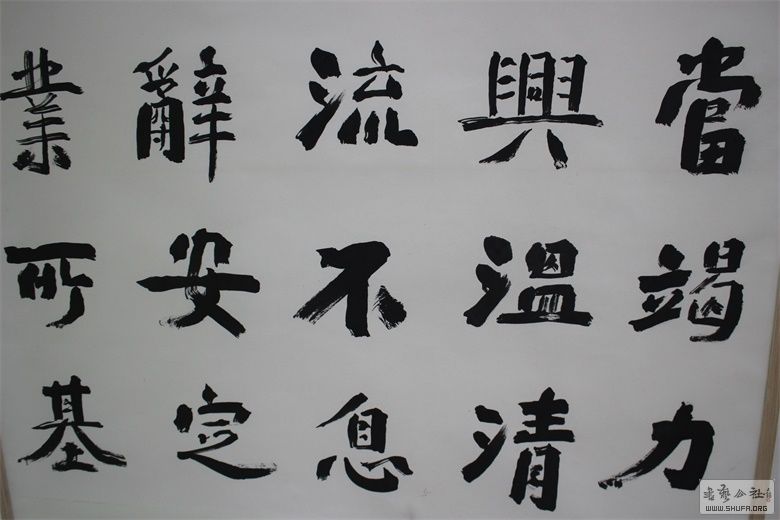 當竭力
興溫清
流不息
辭安定
業所基
書藝公社
WWW.SHUFA.ORG